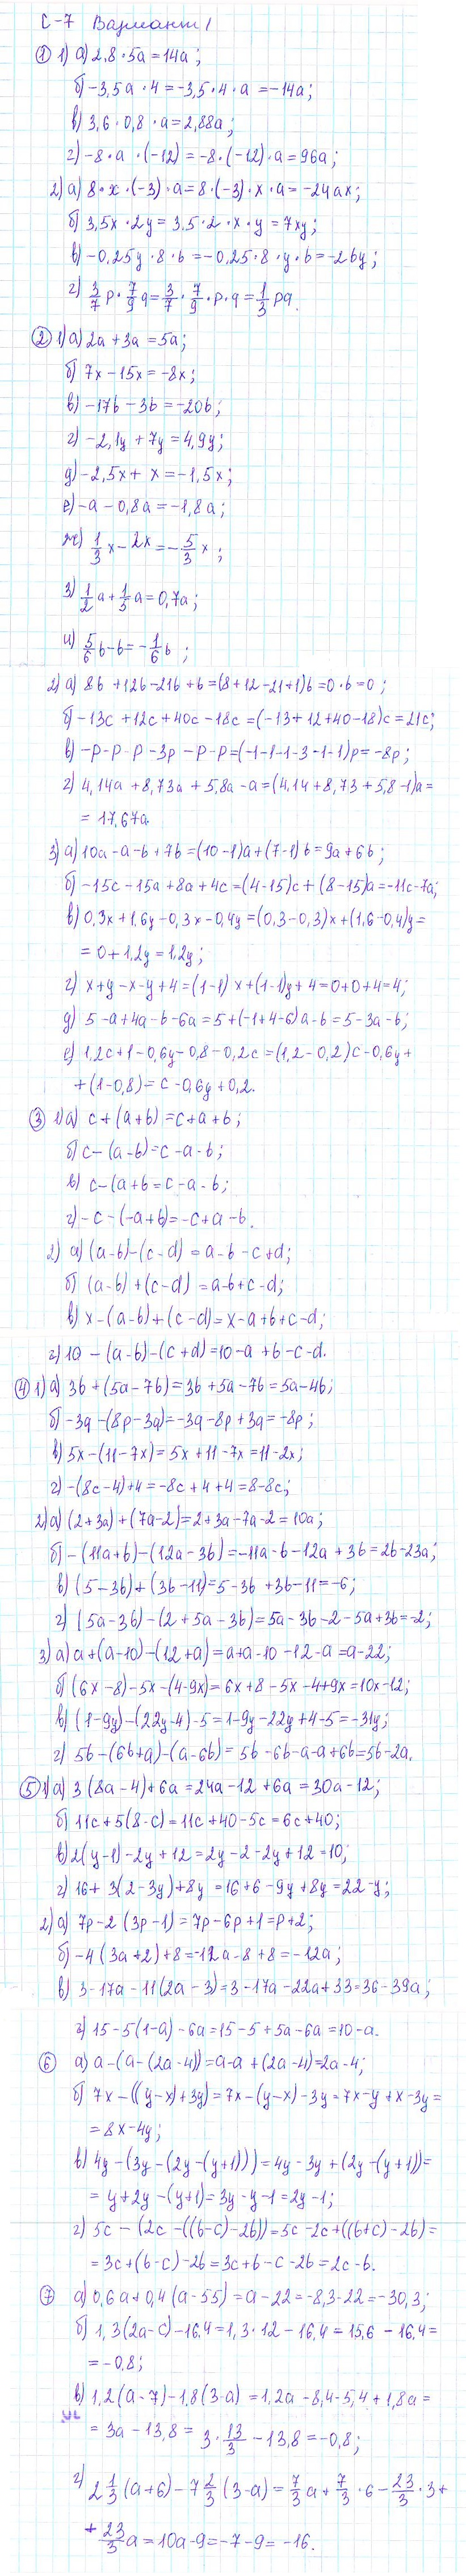 С-7 Вариант 1
① 1) а) 2,8·5a=14a;
б) -3,5a·4=-3,5·4·a=-14a;
в) 3,6·0,8·a=2,88a;
г) -8·a·(-12)=-8·(-12)·a=96a;
2) а) 8·x·(-3)·a=8·(-3)·x·a=-24ax;
б) 3,5x·2y=3,5·2·x·y=7xy;
в) -0,25y·8·b=-0,25·8·y·b=-2by;
г) 3/7 p·7/9 q=3/7·7/9·p·q=1/3 pq.
② 1) а) 2a+3a=5a;
б) 7x-15x=-8x;
в) -17b-3b=-20b;
г) -2,1y+7y=4,9y;
д) -2,5x+x=-1,5x;
е) -a-0,8a=-1,8a;
ж) 1/3 x-2x=-5/3 x;
з) 1/2 a+1/5 a=0,7a;
и) 5/6 b-b=-1/6 b;
2) а) 8b+12b-21b+b=(8+12-21+1)b=0·b=0;
б) -13c+12c+40c-18c=(-13+12+40-18)c=21c;
в) -p-p-p-3p-p-p=(-1-1-1-3-1-1)p=-8p;
г) 4,14a+8,73a+5,8a-a=(4,14+8,73+5,8-1)a=
=17,67a.
3) а) 10a-a-b+7b=(10-1)a+(7-1)b=9a+6b;
б) -15c-15a+8a+4c=(4-15)c+(8-15)a=-11c-7a;
в) 0,3x+1,6y-0,3x-0,4y=(0,3-0,3)x+(1,6-0,4)y=
=0+1,2y=1,2y;
г) x+y-x-y+4=(1-1)x+(1-1)y+4=0+0+4=4;
д) 5-a+4a-b-6a=5+(-1+4-6)a-b=5-3a-b;
е) 1,2c+1-0,6y-0,8-0,2c=(1,2-0,2)c-0,6y+
+(1-0,8)=c-0,6y+0,2.
③ 1) а) c+(a+b)=c+a+b;
б) c-(a-b)=c-a-b;
в) c-(a+b=c-a-b;
г) -c-(-a+b)=-c+a-b.
2) а) (a-b)-(c-d)=a-b-c+d;
б) (a-b)+(c-d)=a-b+c-d;
в) x-(a-b)+(c-d)=x-a+b+c-d;
г) 10-(a-b)-(c+d)=10-a+b-c-d.
④ 1) а) 3b+(5a-7b)=3b+5a-7b=5a-4b;
б) -3q-(8p-3q)=-3q-8p+3q=-8p;
в) 5x-(11-7x)=5x+11-7x=11-2x;
г) -(8c-4)+4=-8c+4+4=8-8c;
2) а) (2+3a)+(7a-2)=2+3a-7a-2=10a;
б) -(11a+b)-(12a-3b)=-11a-b-12a+3b=2b-23a;
в) (5-3b)+(3b-11)=5-3b+3b-11=-6;
г) (5a-3b)-(2+5a-3b)=5a-3b-2-5a+3b=-2;
3) а) a+(a-10)-(12+a)=a+a-10-12-a=a-22;
б) (6x-8)-5x-(4-9x)=6x+8-5x-4+9x=10x-12;
в) (1-9y)-(22y-4)-5=1-9y-22y+4-5=-31y;
г) 5b-(6b+a)-(a-6b)=5b-6b-a-a+6b=5b-2a.
⑤ 1) а) 3(8a-4)+6a=24a-12+6a=30a-12;
б) 11c+5(8-c)=11c+40-5c=6c+40;
в) 2(y-1)-2y+12=2y-2-2y+12=10;
г) 16+3(2-3y)+8y=16+6-9y+8y=22-y;
2) а) 7p-2(3p-1)=7p-6p+1=p+2;
б) -4(3a+2)+8=-12a-8+8=-12a;
в) 3-17a-11(2a-3)=3-17a-22a+33=36-39a;
г) 15-5(1-a)-6a=15-5+5a-6a=10-a.
⑥ а) a-(a-(2a-4))=a-a+(2a-4)=2a-4;
б) 7x-((y-x)+3y)=7x-(y-x)-3y=7x-y+x-3y=
=8x-4y;
в) 4y-(3y-(2y-(y+1)))=4y-3y+(2y-(y+1))=
=y+2y-(y+1)=3y-y-1=2y-1;
г) 5c-(2c-((b-c)-2b))=5c-2c+((b+c)-2b)=
=3c+(b-c)-2b=3c+b-c-2b=2c-b.
⑦ а) 0,6a+0,4(a-55)=a-22=-8,3-22=-30,3;
б) 1,3(2a-c)-16,4=1,3·12-16,4=15,6-16,4=
=-0,8;
в) 1,2(a-7)-1,8(3-a)=1,2a-8,4-5,4+1,8a=
=3a-13,8=3·13/3-13,8=-0,8;
г) 2 1/3(a+6)-7 2/3(3-a)=7/3 a+7/3·6-23/3·3+
+23/3 a=10a-9=-7-9=-16.